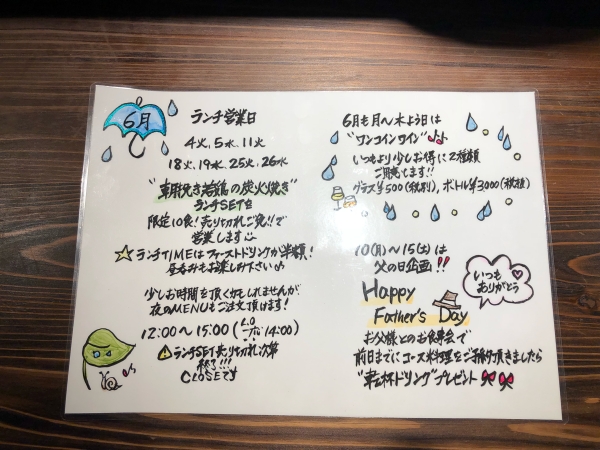 6月
ランチ営業日
4火、5水、11火
18火、19水、25火、26水
"朝挽き若鶏の炭火焼き"
ランチSETを
限定10食!売り切れご免!!で
営業します
☆ランチTIMEはファーストドリンクが半額!
昼呑みもお楽しみ下さい♪
少しお時間を頂くかもしれませんが
夜のMENUもご注文頂けます!
12:00〜15:00(L.O フード 14:00)
⚠ランチSET売り切れ次第
終了!!!
CLOSEです
6月も月〜木よう日は
"ワンコインワイン"♪♪
いつもより少しお得に2種類
ご用意してます!!
グラス¥500(税別)、ボトル¥3,000(税抜)
10(月)〜15(土)は
父の日企画!!
いつも
ありがとう
Happy
Father's Day
お父様とのお食事会で
前日までにコース料理をご予約頂きましたら
"乾杯ドリンク"プレゼント